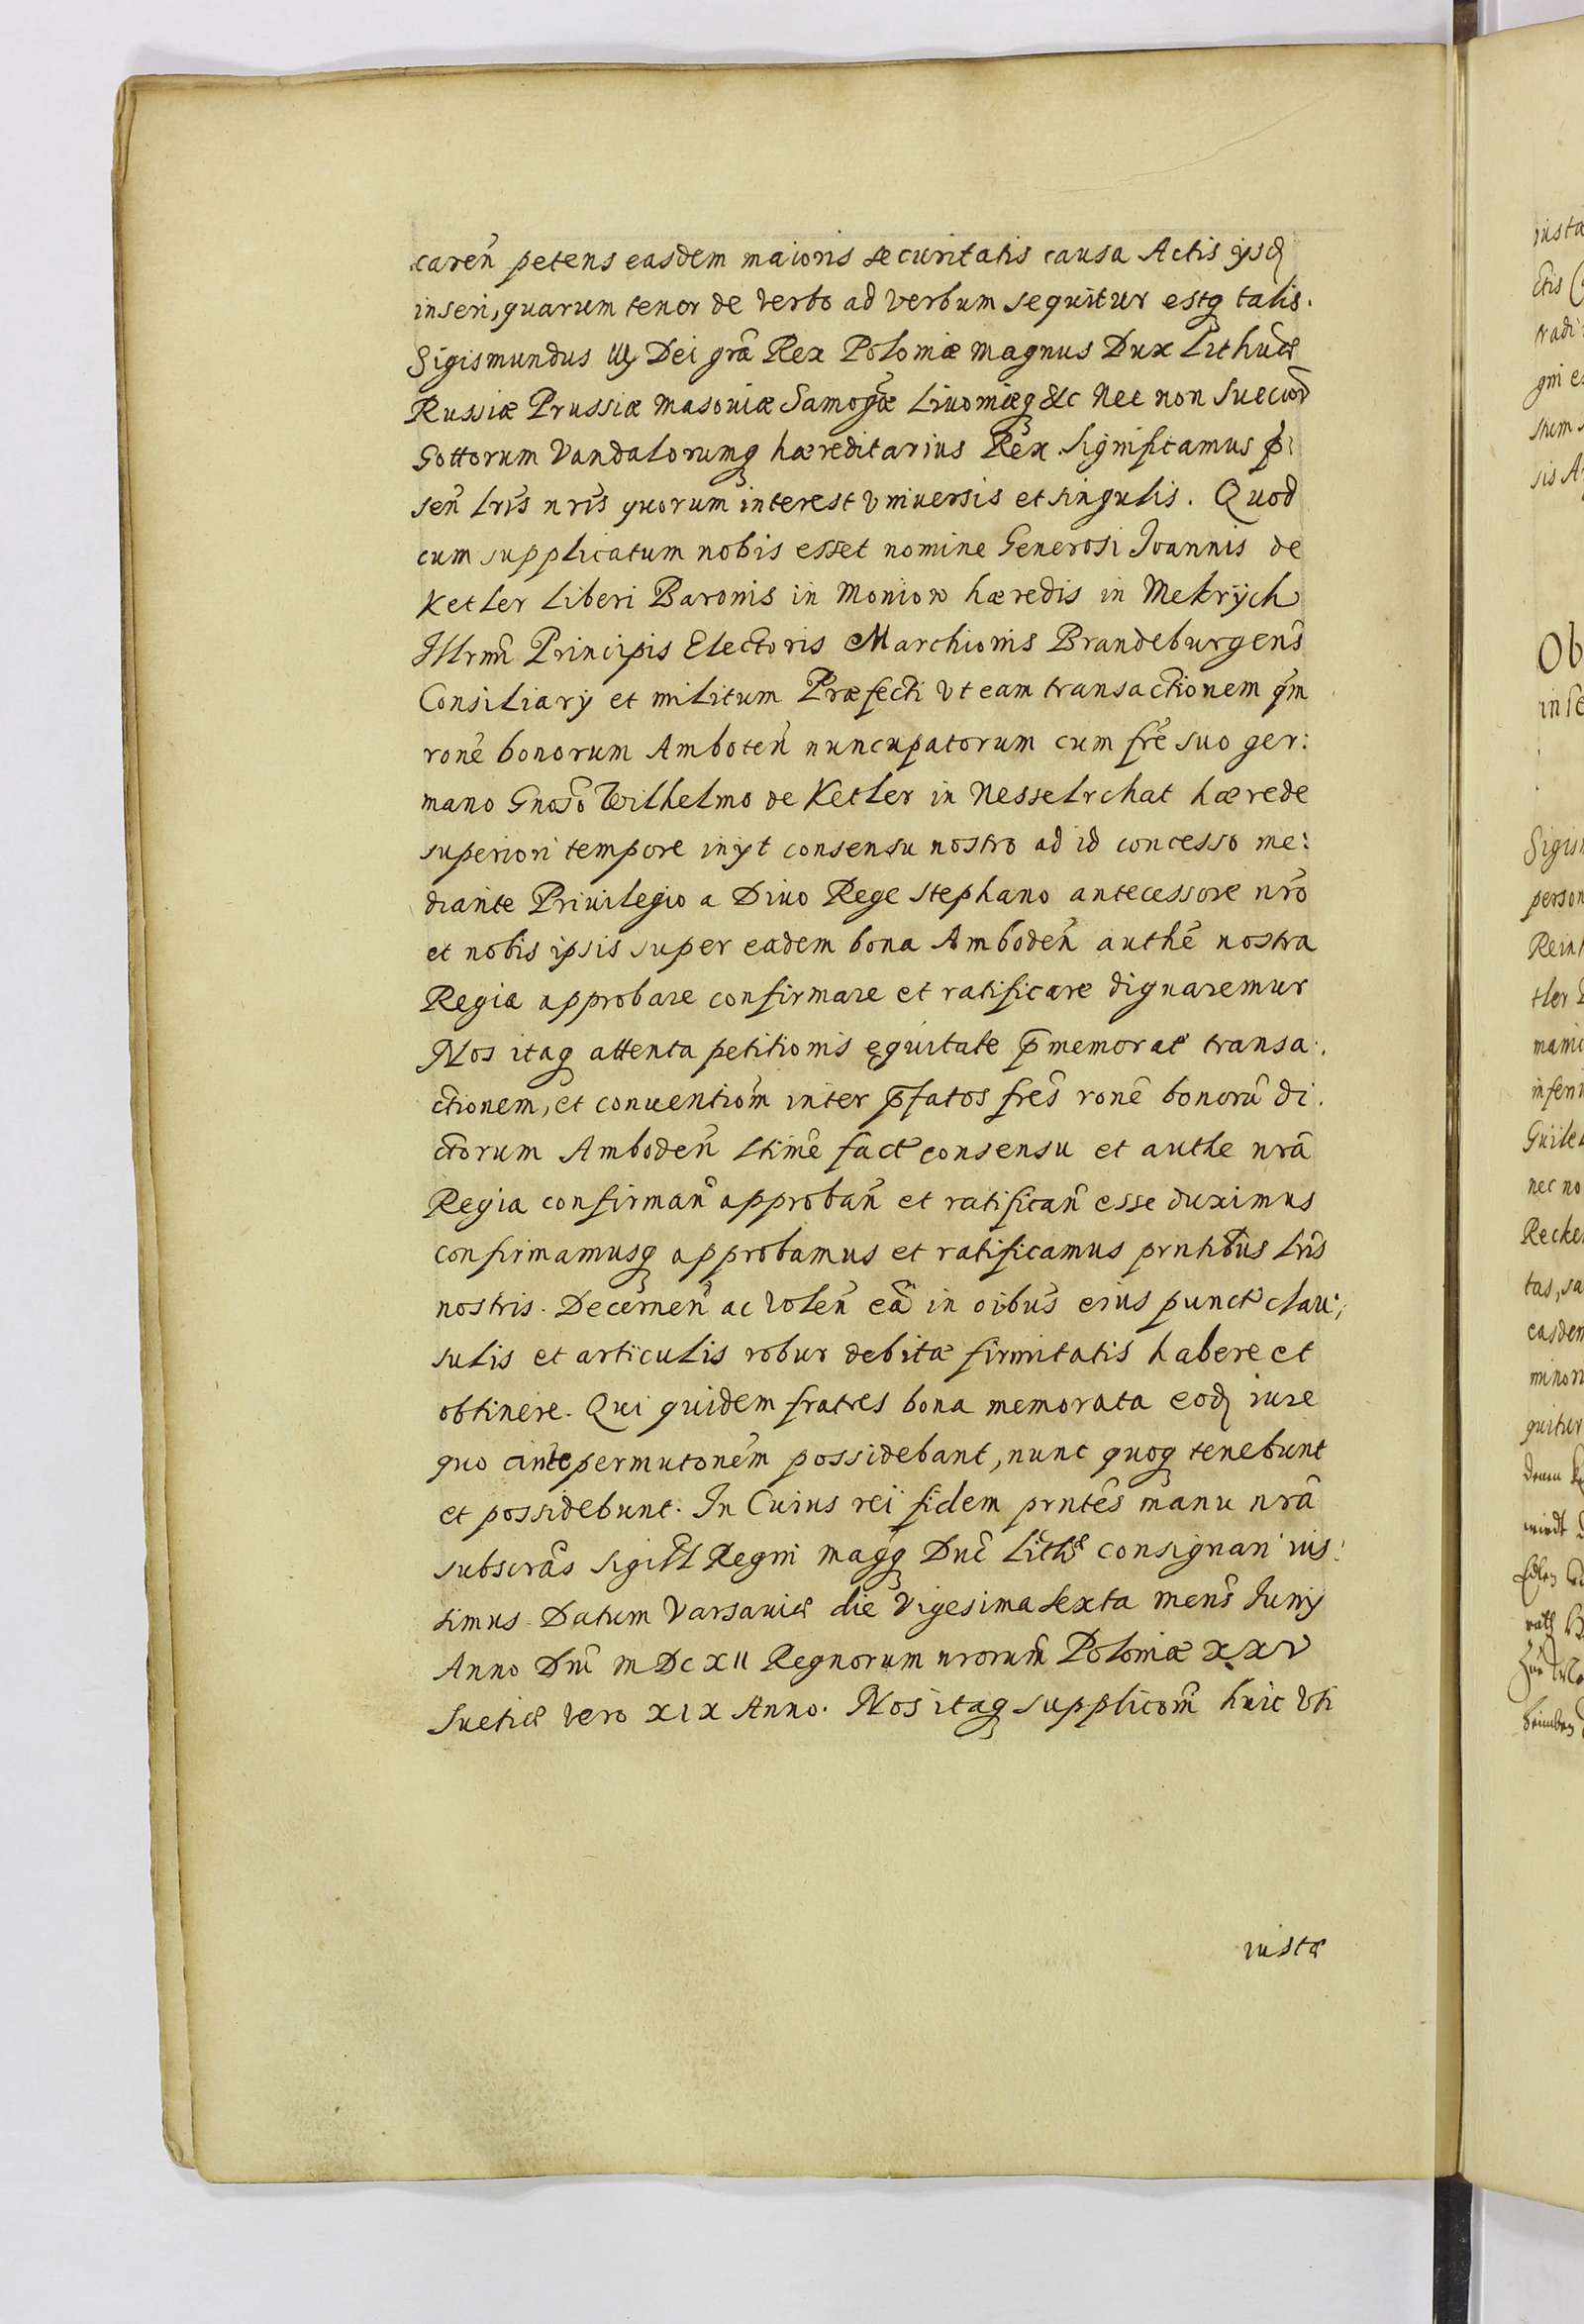 caren̄ petens easdem maioris securitatis causa Actis ijsd
inseri, quarum tenor de verbo ad verbum sequitur estq talis.
Sigismundus iij Dei grā Rex Poloniæ magnus Dux Lithuæ
Russiæ Prussiæ Masouiæ Samogæ Liuoniæq &c Nec non Suecor
Gottorum Vandalorumq hæreditarius Rex. Significamus p̄
sen̄ Lrīs nrīs quorum interest vniuersis et singulis. Quod
cum supplicatum nobis esset nomine Generosi Joannis de
Ketler Liberi Baronis in Moniow hæredis in Mekrÿch
Illrmī Principis Electoris Marchionis Brandeburgen̄s
Consiliarij et militum Præfecti vt eam transactionem qm̄
ronē bonorum Amboten̄ nuncupatorum cum frē suo ger:
mano Gnosō Wilhelmo de Ketler in Nesselrchat hærede
superiori tempore inijt consensu nostro ad id concesso me:
diante Priuilegio a Diuo Rege Stephano antecessore nrō
et nobis ipsis super eadem bona Amboden̄ authē nostra
Regia approbare confirmare et ratificare dignaremur
Nos itaq attenta petitionis ęquitate p̄memorat transa:
ctionem, et conuentiom̄ inter p̄fatos frēs ronē bonorū di.
ctorum Amboden̄ Ltimē fact consensu et authe nrā
Regia confirman̄ approban̄ et ratifican̄ esse duximus
confirmamusq approbamus et ratificamus prntibūs Lrīs
nostris. Decernen̄ ac volen̄ eā in oibūs eius punct clau:
sulis et articulis robur debitæ firmitatis habere et
obtinere. Qui quidem fratres bona memorata eod iure
quo ante permutonēm possidebant, nunc quoq tenebunt
et possidebunt. In Cuius rei fidem prntēs manu nrā
subscrās Sigill Regni magq Duc̄ Lithæ consignari ius:
simus. Datum Varsauiæ die vigesima sexta mens̄ Junij
Anno Dnī MDcXII Regnorum nrorum̄ Poloniæ XXV
Suetiæ vero XIX Anno. Nos itaq supplicom̄ huic vti
iustæ